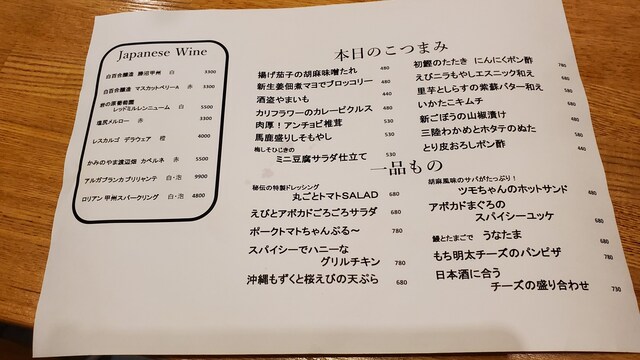 Japanese Wine
白百合醸造 勝沼甲州 白 3300
白百合醸造 マスカットベリーA 赤 3300
岩の原葡萄園
レッドミルレンニューム 白 5500
塩尻メルロー 赤 3300
レスカルゴ デラウェア 橙 4000
かみのやま渡辺畑 カベルネ 赤 5500
アルガブランカ ブリリャンテ 白・泡 9900
ロリアン 甲州スパークリング 白・泡 4800
本日のこつまみ
揚げ茄子の胡麻味噌たれ 480
新生姜佃煮マヨでブロッコリー 480
酒盗やまいも 440
カリフラワーのカレーピクルス 480
肉厚！アンチョビ椎茸 530
馬鹿盛りしそもやし 530
梅しそひじきの
ミニ豆腐サラダ仕立て 530
初鰹のたたき にんにくポン酢 780
えびニラもやしエスニック和え 680
里芋としらすの紫蘇バター和え 580
いかたこキムチ 680
新ごぼうの山椒漬け 480
三陸わかめとホタテのぬた 580
とり皮おろしポン酢 440
一品もの
秘伝の特製ドレッシング
丸ごとトマトSALAD 680
えびとアボカドごろごろサラダ 680
ポークトマトちゃんぷる〜 780
スパイシーでハニーな
グリルチキン 780
沖縄もずくと桜えびの天ぷら 680
胡麻風味のサバがたっぷり！
ツモちゃんのホットサンド 480
アボカドまぐろの
スパイシーユッケ 680
鰻とたまごで うなたま 680
もち明太チーズのパンピザ 780
日本酒に合う
チーズの盛り合わせ 730